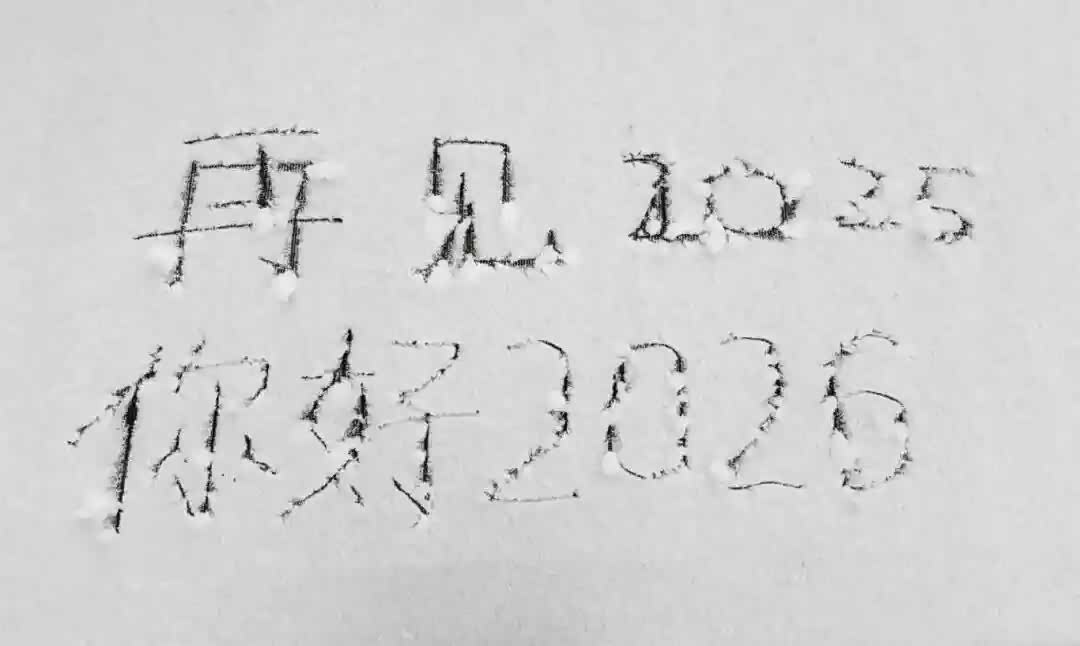 再见2025
你好2026